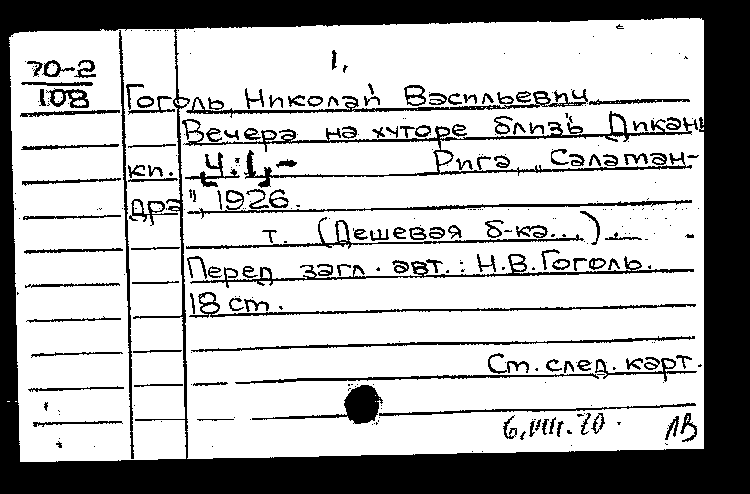 1.
70-2
108
Гоголь, Николай Васильевич
Вечера на хуторе близъ Дикань
ки. [Ч. I,] –
Рига, "Саламан-
дра", 1926.
т. (Дешевая б-ка...).
Перед загл. авт.: Н.В.Гоголь.
18 cm.
См. след. карт.
6.VIII.70. ЛВ